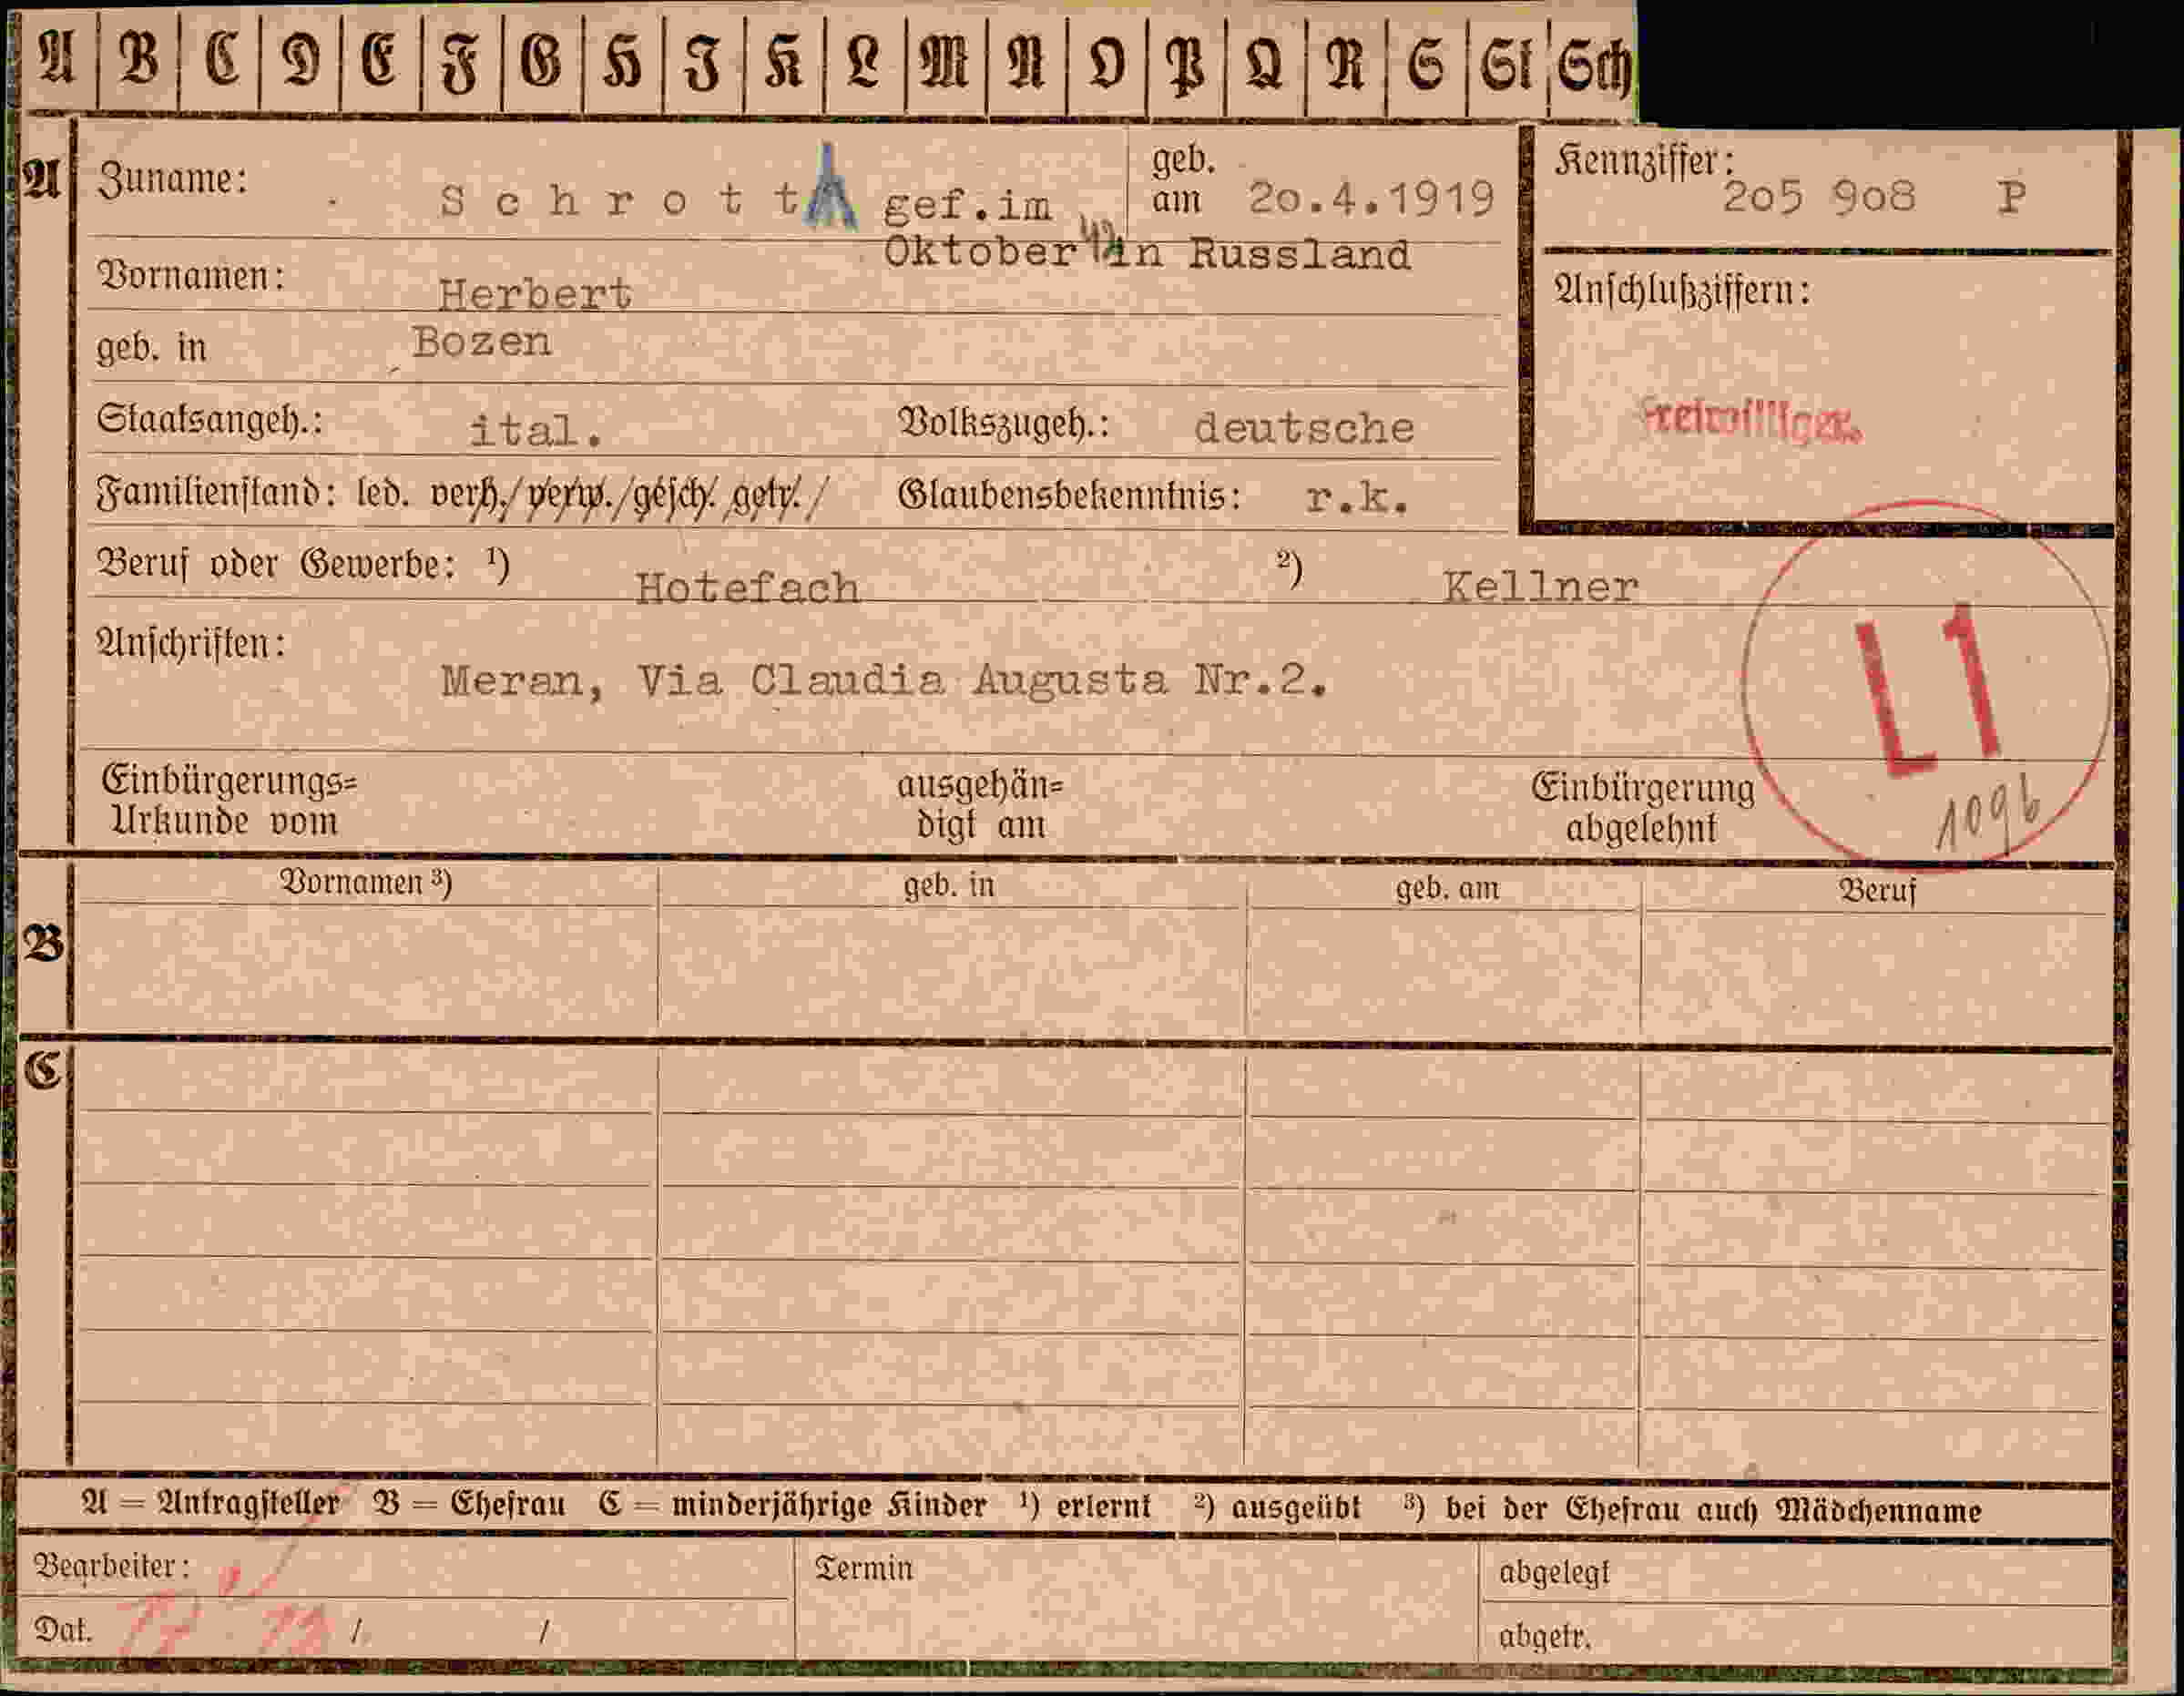 A B C D E F G H I K L M N O P Q R S St Sch
A Zuname: Schrott gef.im geb. am 20.4.1919 Kennziffer: 205 908 P
Oktober 42 in Russland
Vornamen: Herbert
Anschlußziffern:
geb. in Bozen
Freiwilliger
Staatsangeh.: ital. Volkszugeh.: deutsche
Familienstand: led. verh./verw./gesch./getr./ Glaubensbekenntnis: r.k.
Beruf oder Gewerbe: ¹) Hotefach ²) Kellner
L1
Anschriften:
Meran, Via Claudia Augusta Nr.2.
Einbürgerungs= ausgehän= Einbürgerung
Urkunde vom digt am abgelehnt
1096
Vornamen ³) geb. in geb. am Beruf
B
C
A = Antragsteller B = Ehefrau C = minderjährige Kinder ¹) erlernt ²) ausgeübt ³) bei der Ehefrau auch Mädchenname
Bearbeiter: Termin abgelegt
Dat. / / abgetr.